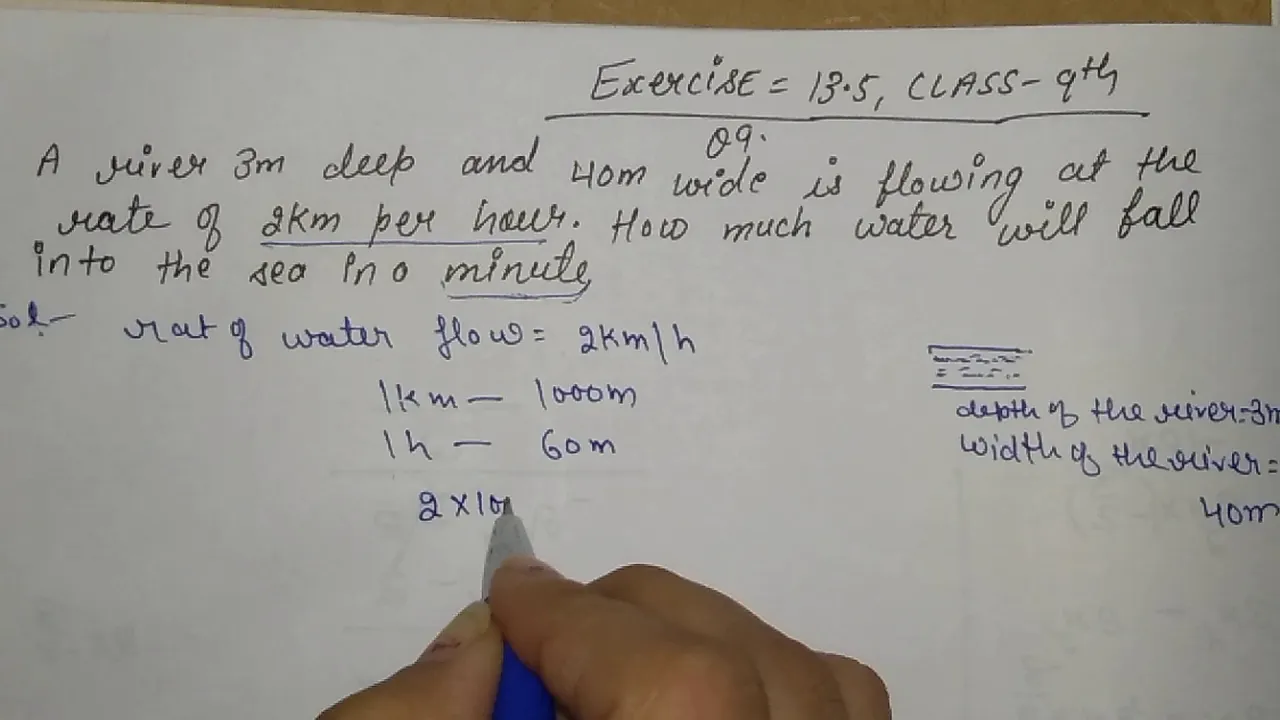 Exercise = 13.5, CLASS - 9th
Q9.
A river 3m deep and 40m wide is flowing at the
rate of 2km per hour. How much water will fall
into the sea in a minute
Sol-
rat of water flow = 2km/h
1km — 1000m
1h — 60m
2 × 10
depth of the river = 3m
width of the river =
40m